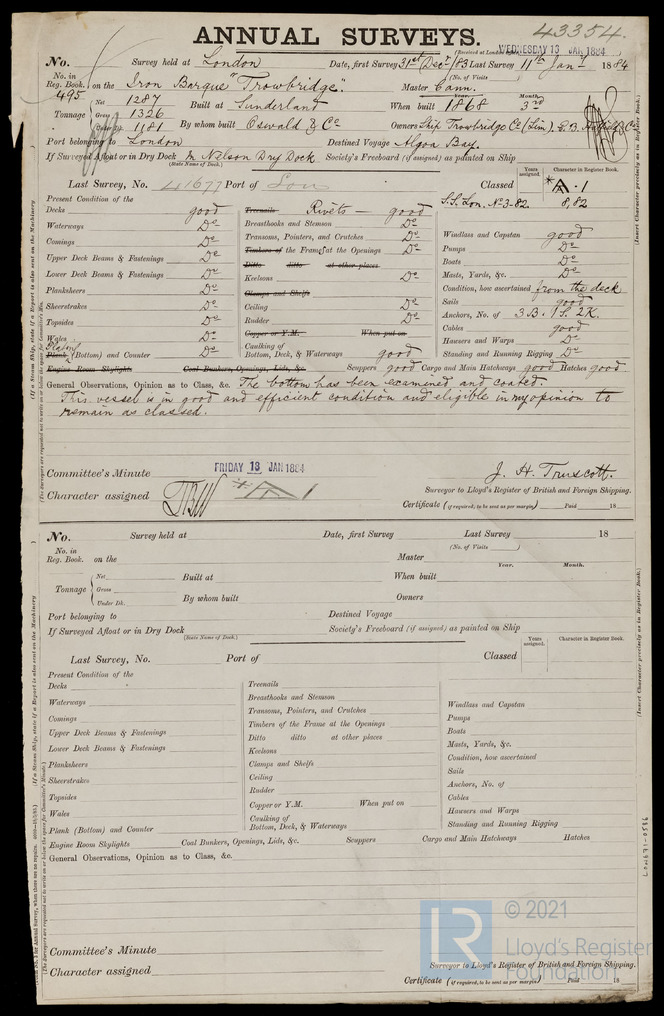 43354.
ANNUAL SURVEYS.
(Received at London Office WEDNESDAY 13 JAN 1884
No. Survey held at London Date, first Survey 31st Decr /83 Last Survey 11th Jany 1884
(No. of Visits )
No. in Reg. Book. 495 on the Iron Barque "Trowbridge". Master Cann.
Year. Month.
Tonnage Net 1287 Built at Sunderland When built 1868 3rd
Gross 1326
Under Dk. 1181 By whom built Oswald & Co Owners Ship Trowbridge Co (Lim).
Port belonging to London Destined Voyage Algoa Bay.
If Surveyed Afloat or in Dry Dock In Nelson Dry Dock Society's Freeboard (if assigned) as painted on Ship
(State Name of Dock.)
Years assigned. Character in Register Book.
Last Survey, No. 41677 Port of Lon Classed *A.1
S.S. Lon. No 3-82. 8,82
Present Condition of the
Decks good
Waterways Do
Comings Do
Upper Deck Beams & Fastenings Do
Lower Deck Beams & Fastenings Do
Planksheers Do
Sheerstrakes Do
Topsides Do
Wales Do
Plank (Bottom) and Counter Do
Engine Room Skylights Coal Bunkers, Openings, Lids, &c.
Treenails Rivets — good
Breasthooks and Stemson Do
Transoms, Pointers, and Crutches Do
Timbers of the Frame at the Openings Do
Ditto ditto at other places
Keelsons Do
Clamps and Shelfs
Ceiling Do
Rudder Do
Copper or Y.M. When put on
Caulking of Bottom, Deck, & Waterways good
Windlass and Capstan good
Pumps Do
Boats Do
Masts, Yards, &c. Do
Condition, how ascertained from the deck
Sails good
Anchors, No. of 3 B. 1 S. 2 K.
Cables good
Hawsers and Warps Do
Standing and Running Rigging Do
Scuppers good Cargo and Main Hatchways good Hatches good
General Observations, Opinion as to Class, &c. The bottom has been examined and coated.
This vessel is in good and efficient condition and eligible in my opinion to
remain as classed.
Committee's Minute FRIDAY 18 JAN 1884
J. H. Truscott.
Character assigned *A1
Surveyor to Lloyd's Register of British and Foreign Shipping.
Certificate (if required; to be sent as per margin) Paid 18
No. Survey held at Date, first Survey Last Survey 18
(No. of Visits )
No. in Reg. Book. on the Master
Year. Month.
Tonnage Net Built at When built
Gross
Under Dk. By whom built Owners
Port belonging to Destined Voyage
If Surveyed Afloat or in Dry Dock Society's Freeboard (if assigned) as painted on Ship
(State Name of Dock.)
Years assigned. Character in Register Book.
Last Survey, No. Port of Classed
Present Condition of the
Decks
Waterways
Comings
Upper Deck Beams & Fastenings
Lower Deck Beams & Fastenings
Planksheers
Sheerstrakes
Topsides
Wales
Plank (Bottom) and Counter
Engine Room Skylights Coal Bunkers, Openings, Lids, &c.
Treenails
Breasthooks and Stemson
Transoms, Pointers, and Crutches
Timbers of the Frame at the Openings
Ditto ditto at other places
Keelsons
Clamps and Shelfs
Ceiling
Rudder
Copper or Y.M. When put on
Caulking of Bottom, Deck, & Waterways
Windlass and Capstan
Pumps
Boats
Masts, Yards, &c.
Condition, how ascertained
Sails
Anchors, No. of
Cables
Hawsers and Warps
Standing and Running Rigging
Scuppers Cargo and Main Hatchways Hatches
General Observations, Opinion as to Class, &c.
Committee's Minute
Character assigned
Surveyor to Lloyd's Register of British and Foreign Shipping.
Certificate (if required, to be sent as per margin) Paid 18
(Insert Character precisely as in Register Book.)
(Insert Character precisely as in Register Book.)
LON671-0586
© 2021
Lloyd's Register
Foundation